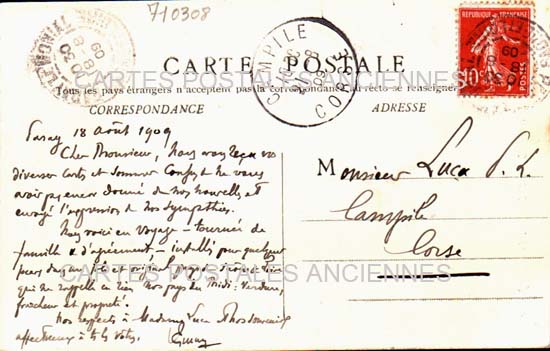 710308
CARTE POSTALE
CARTES POSTALES ANCIENNES
Tous les pays étrangers n'acceptent pas la correspondance au recto-se renseigner
CORRESPONDANCE
ADRESSE
CAMPILE
CORSE
REPUBLIQUE FRANÇAISE
10
POSTES
Paray 18 Août 1909
Cher Monsieur, Nous avons reçu vo
diverses cartes et sommes confus de ne vous
avoir pas encore donné de nos nouvelles et
envoyé l'expression de nos sympathies.
Nous voici en voyage - tournée de
famille & d'agrément - installés pour quelques
jours dans
et original
pays
qui ne rappelle en rien nos pays du Midi: Verdure,
fraîcheur et propreté.
Nos respects à Madame Luca & nos souvenirs
affectueux à
Monsieur Luca P. L.
Campile
Corse
CARTES POSTALES ANCIENNES